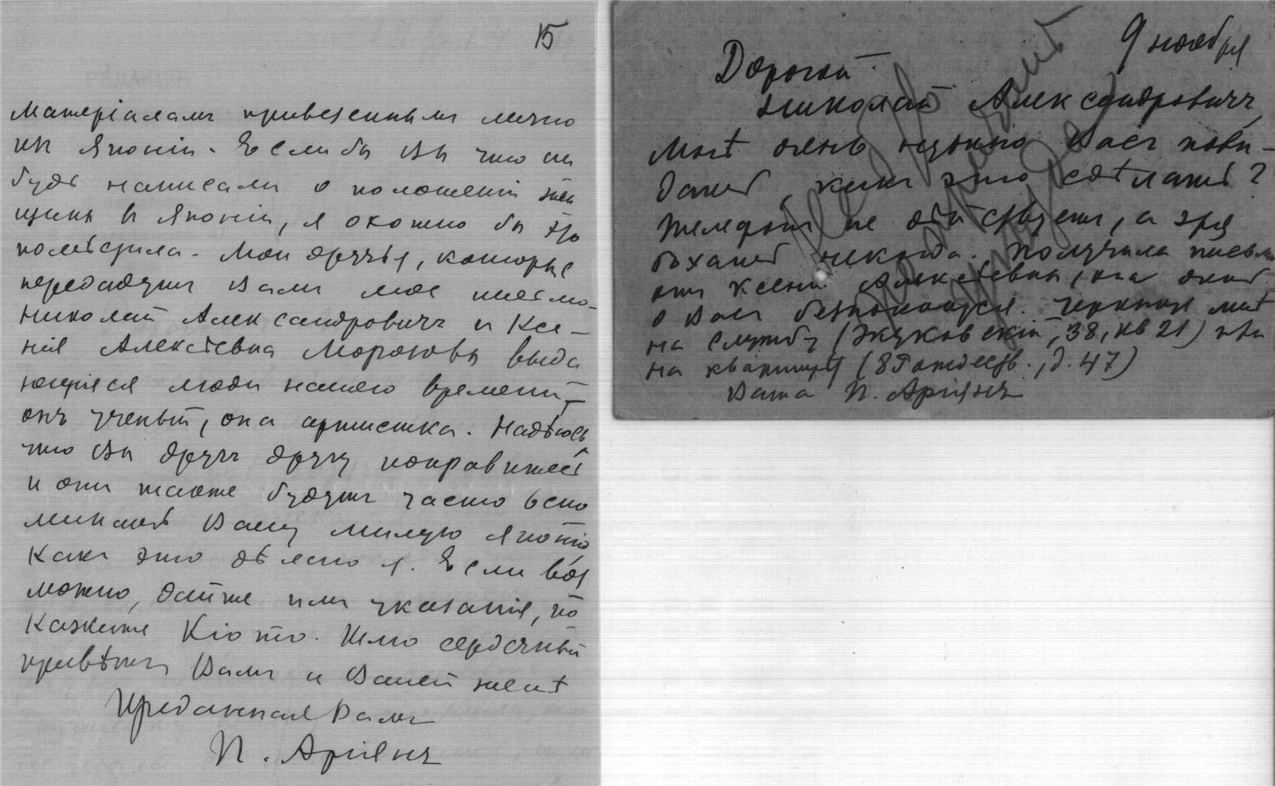 15
матеріалами привезенными лично
изъ Японіи. Если бы Вы что ни
будь написали о положеніи жен
щинъ въ Японіи, я охотно бы это
помѣстила. Мои друзья, которые
передадутъ Вамъ мое письмо
Николай Александровичъ и Ксе-
нія Алексѣевна Морозовы выда
ющіяся люди нашего времени,
онъ ученый, она артистка. Надѣюсь
что Вы другъ другу понравитесь
и они также будутъ часто вспо
минать Вашу милую Японію
какъ это дѣлаю я. Если воз
можно, дайте имъ указанія, по
кажите Кіото. Шлю сердечный
привѣтъ Вамъ и Вашей женѣ
Преданная Вамъ
П. Аріянъ
9 ноября
Дорогой
Николай Александровичъ,
Мнѣ очень нужно Васъ пови-
дать, какъ это сдѣлать?
Телефонъ не дѣйствуетъ, а зря
ѣхать некогда. Получила письмо
отъ Ксеніи Алексѣевны, она очень
о Васъ безпокоится. Черкните мнѣ
на службу (Жуковскій, 38, кв 21) или
на квартиру (8 Рождеств., д. 47)
Ваша П. Аріянъ